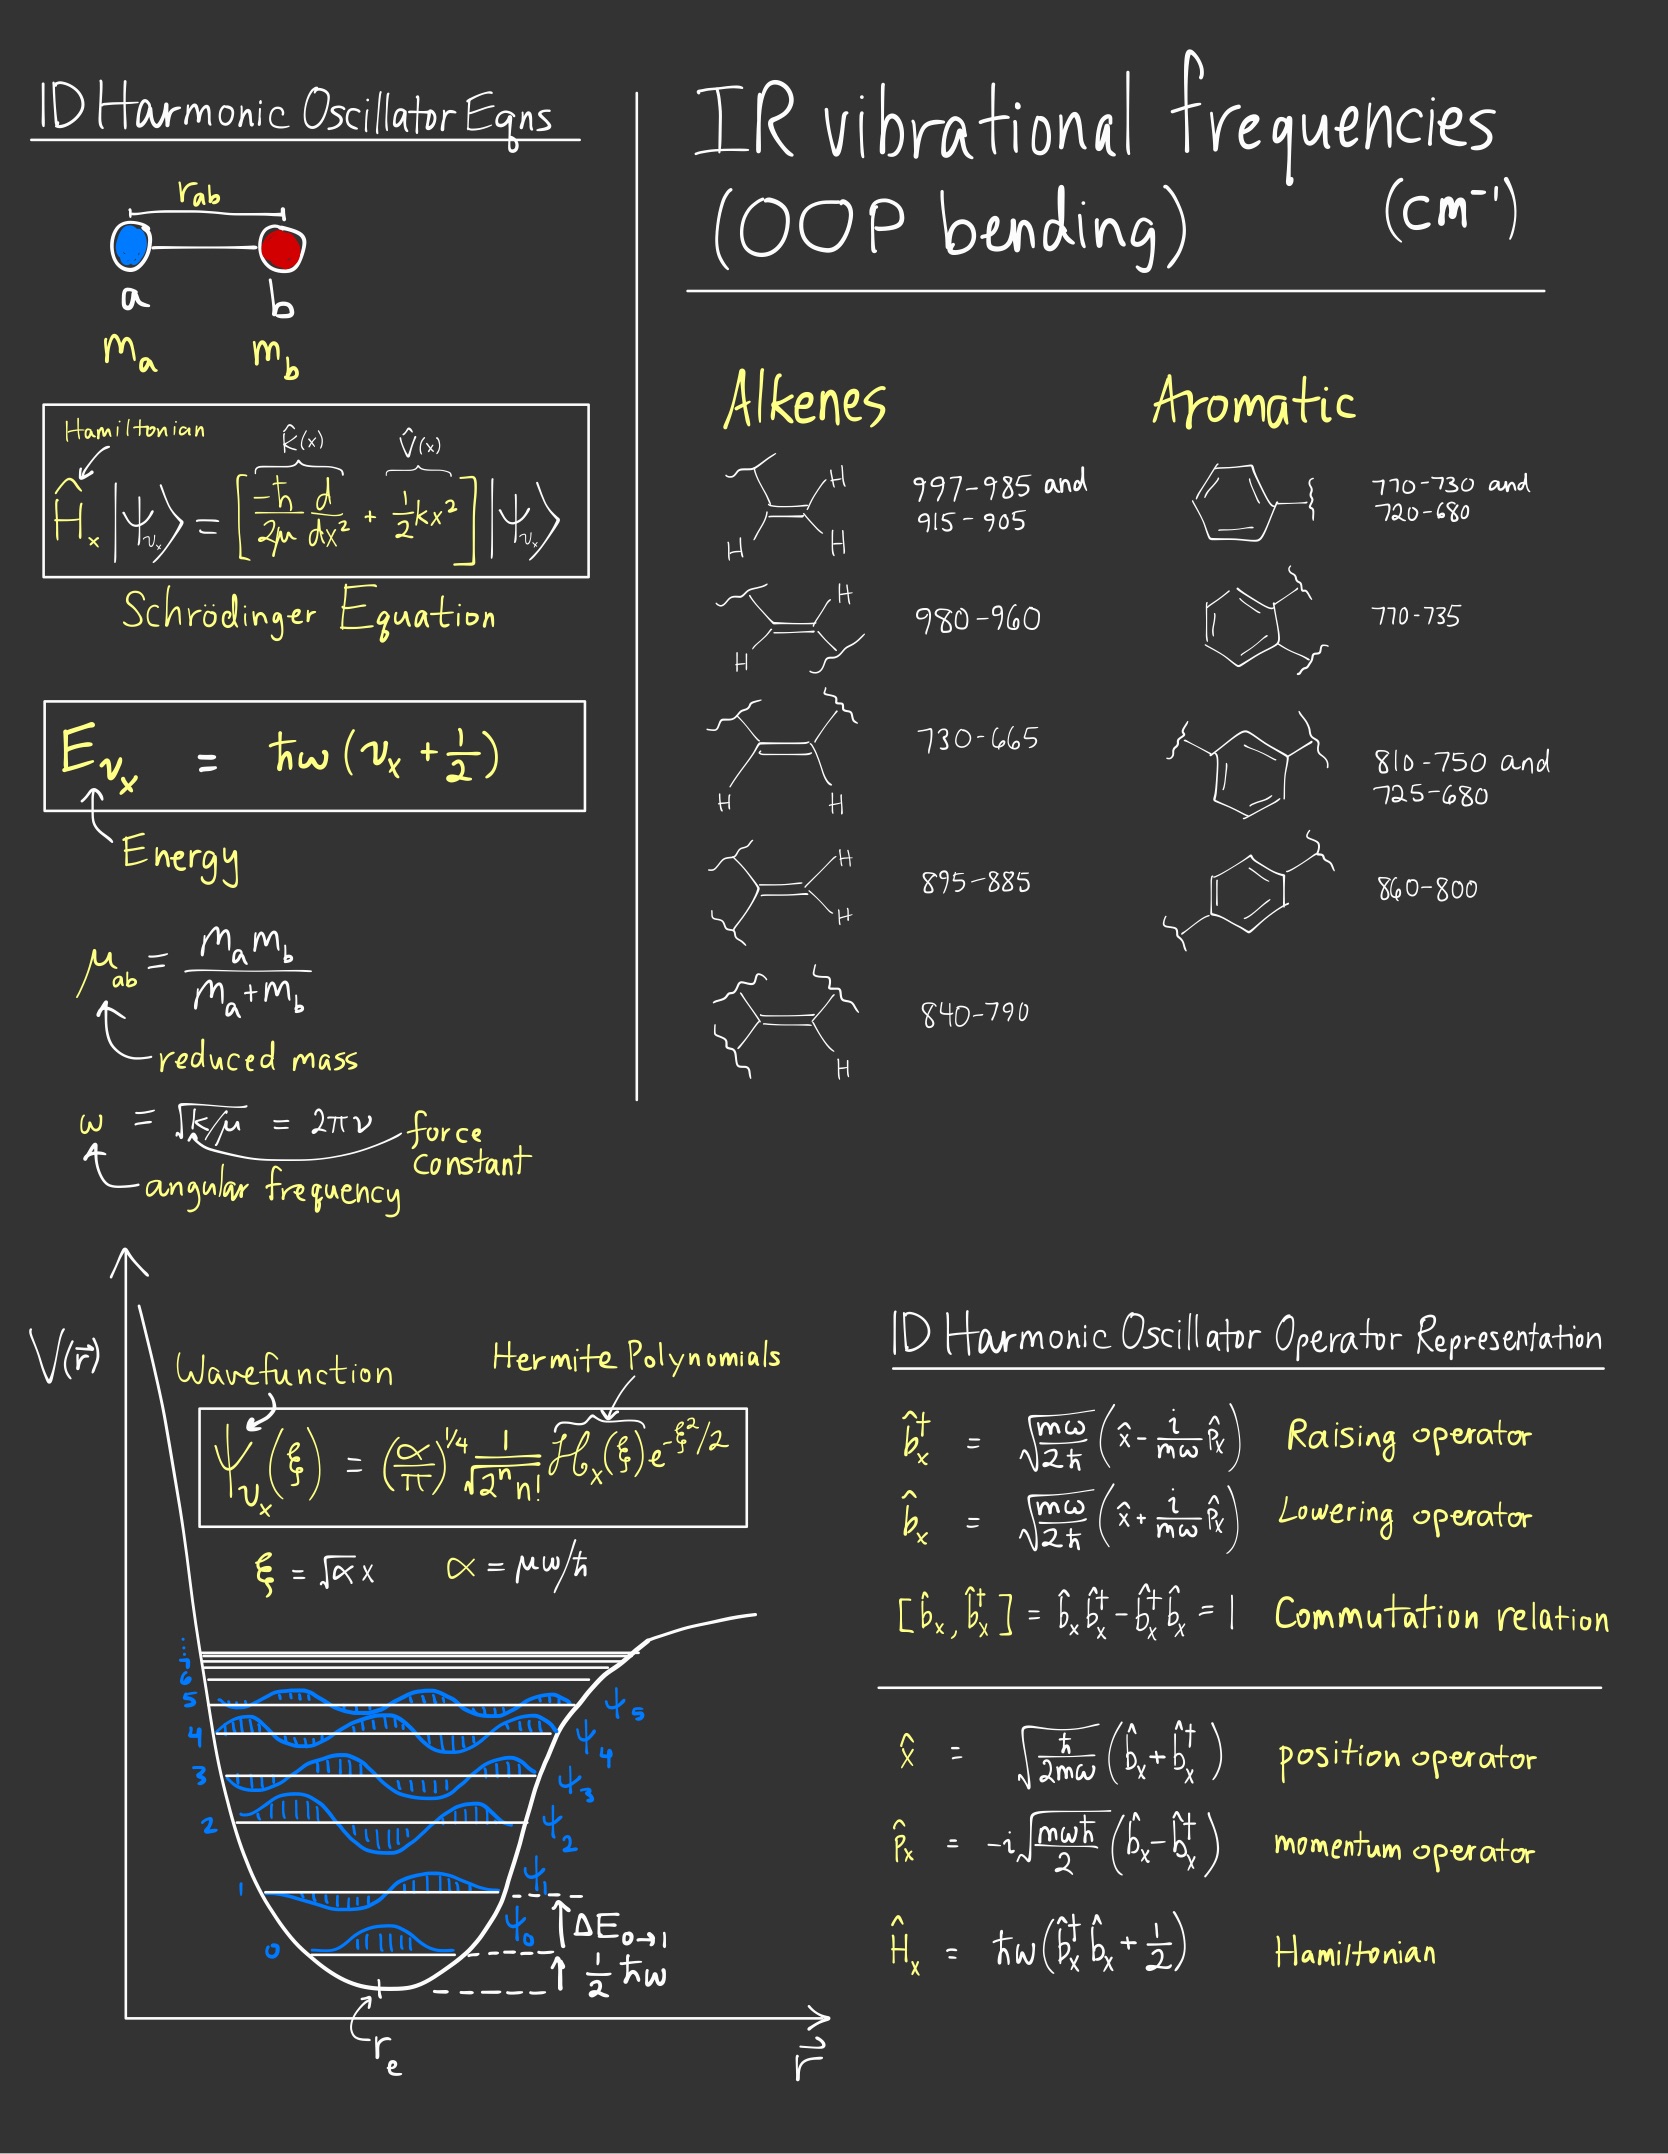 1D Harmonic Oscillator Eqns
r_ab
a b
m_a m_b
Hamiltonian K̂(x) V̂(x)
Ĥ_x |ψ_v_x⟩ = [-ħ/2μ d/dx² + 1/2 kx²] |ψ_v_x⟩
Schrödinger Equation
E_v_x = ħω(v_x + 1/2)
Energy
μ_ab = m_a m_b / m_a + m_b
reduced mass
ω = √k/μ = 2πν force
constant
angular frequency
IR vibrational frequencies
(OOP bending) (cm⁻¹)
Alkenes
H
H
H
997-985 and
915-905
H
H
980-960
H
H
730-665
H
H
895-885
H
840-790
Aromatic
770-730 and
720-680
770-735
810-750 and
725-680
860-800
V(r⃗)
Wavefunction Hermite Polynomials
ψ_v_x(ξ) = (α/π)^1/4 1/√2ⁿn! ℋ_x(ξ) e^-ξ²/2
ξ = √α x α = μω/ħ
⋮
7
6
5 ψ_5
4 ψ_4
3 ψ_3
2 ψ_2
1 ψ_1
0 ψ_0
ΔE_0→1
1/2 ħω
r_e
r⃗
1D Harmonic Oscillator Operator Representation
b̂†_x = √mω/2ħ (x̂ - i/mω p̂_x) Raising operator
b̂_x = √mω/2ħ (x̂ + i/mω p̂_x) Lowering operator
[b̂_x, b̂†_x] = b̂_x b̂†_x - b̂†_x b̂_x = 1 Commutation relation
x̂ = √ħ/2mω (b̂_x + b̂†_x) position operator
p̂_x = -i√mωħ/2 (b̂_x - b̂†_x) momentum operator
Ĥ_x = ħω(b̂†_x b̂_x + 1/2) Hamiltonian